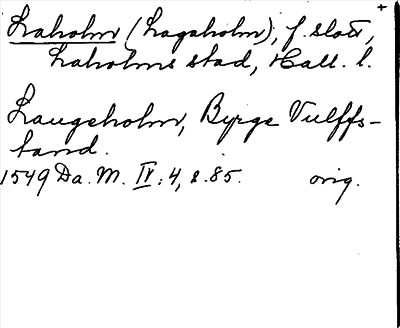 +
Laholm (Lagaholm), f. slott,
Laholms stad, Hall. l.
Laugeholm, Byrge Vulffs-
band.
1549 Da. M. IV: 4, s. 85. orig.